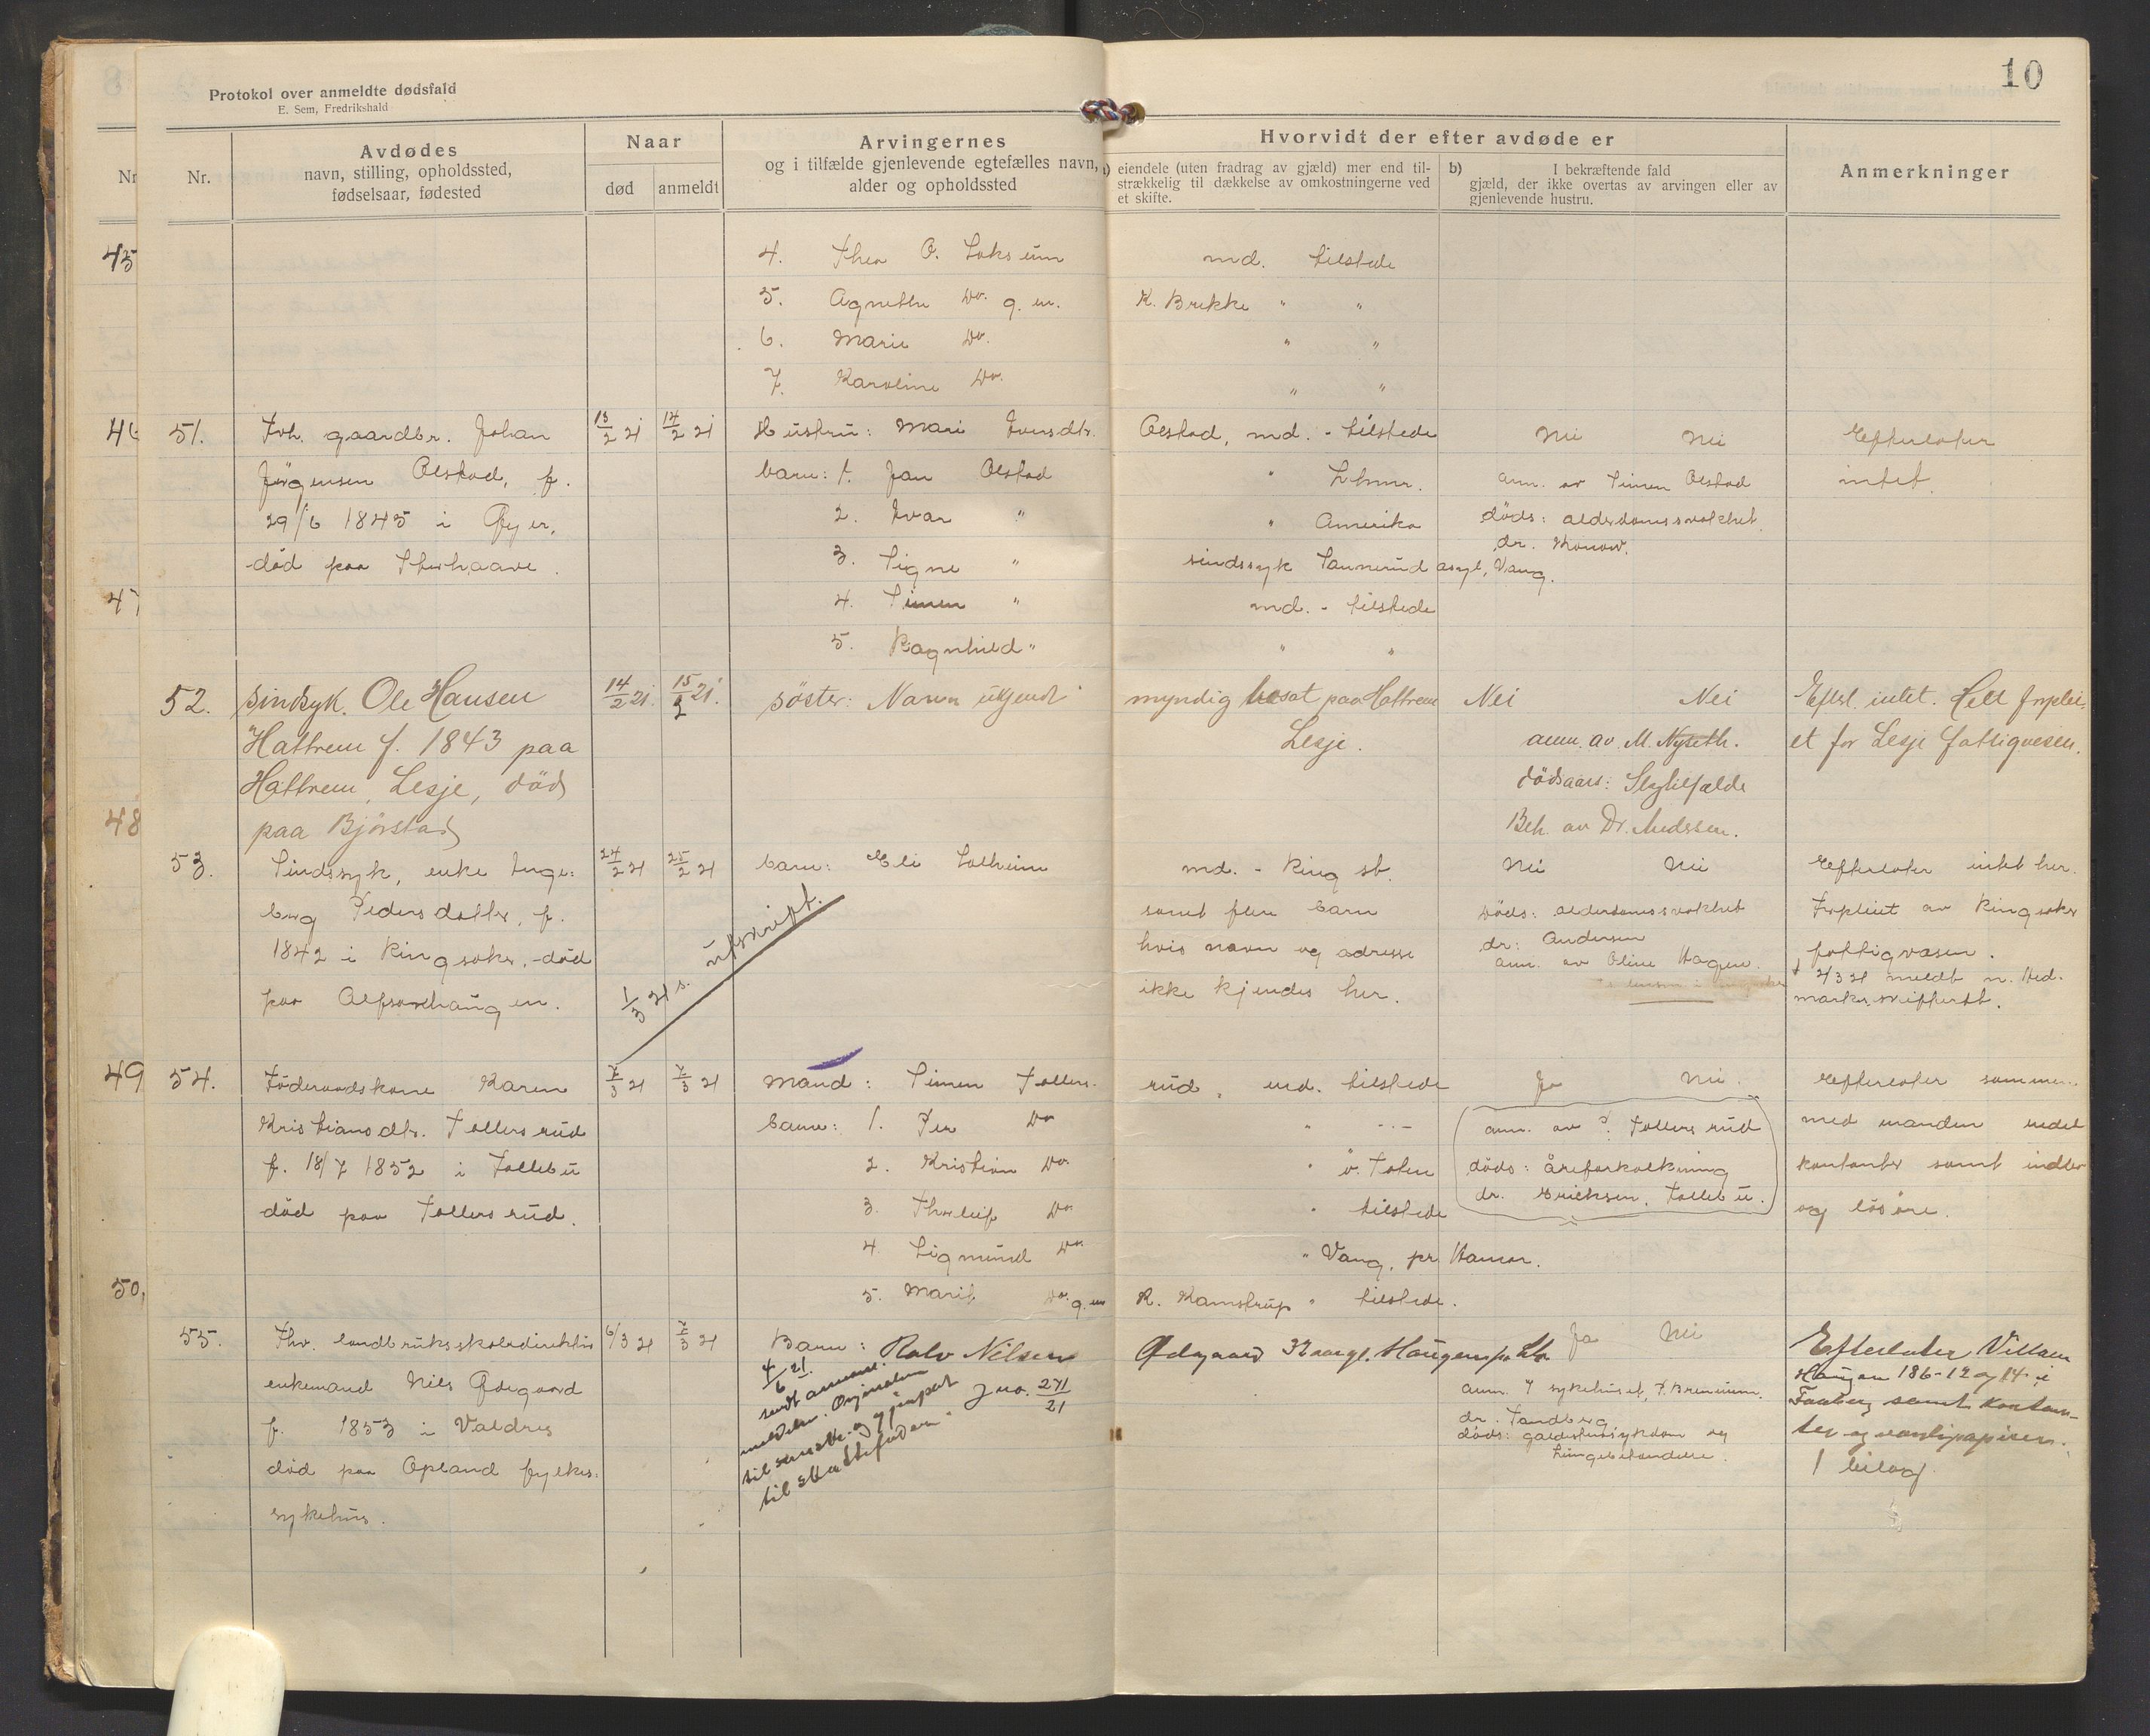 Protokol over anmeldte dødsfald
E. Sem, Fredrikshald
10
Nr.
Avdødes
navn, stilling, opholdssted,
fødselsaar, fødested
Naar
død
anmeldt
Arvingernes
og i tilfælde gjenlevende egtefælles navn,
alder og opholdssted
Hvorvidt der efter avdøde er
a) eiendele (uten fradrag av gjæld) mer end til-
strækkelig til dækkelse av omkostningerne ved
et skifte.
b) I bekræftende fald
gjæld, der ikke overtas av arvingen eller av
gjenlevende hustru.
Anmerkninger
Nr
45
46
47
48
49
50,
4. Thea O. Loksum md. tilstede
5. Agnethe Do. g. m. K. Brekke " "
6. Marie Do. " "
7. Karoline Do. " "
51. Fvh. gaardbr. Johan 13/2 21 14/2 21 Hustru: Mari Iversdtr. Olstad, md. - tilstede Nei Nei Efterlater
Jørgensen Olstad, f. barn: 1. Jan Olstad " Lhmr. anm. av Simen Olstad intet.
29/6 1845 i Øyer, 2. Ivar " " Amerika døds: alderdomssvakhet.
dr. Konow.
død paa Storhaave. 3. Signe " sindssyk Sannerud asyl, Vang.
4. Simen " md. - tilstede
5. Ragnhild " " "
52. sindsyk. Ole Hansen 14/2 21. 15/2 21. søster: Navn ukjendt myndig bosat paa Hattrem Nei Nei Efterl. intet. Helt forplei-
Hattrem f. 1843 paa Lesje. anm. av M. Nyseth. et for Lesje fattigvesen.
Hattrem, Lesje, død dødsaars: Slagtilfælde
paa Bjørstad Beh. av Dr. Anderssen.
53. Sindssyk, enke Inge- 24/2 21 25/2 21 barn: Eli Solheim md. - Ring st. Nei Nei Efterlater intet her.
borg Pedersdatter, f. samt flere barn døds: alderdomssvakhet Forpleiet av Ringsaker
1842 i Ringsaker, - død hvis navn og adresse dr: Andersen fattigvæsen.
anm. av Oline Hagen.
paa Alfsonhaugen. 1/3 21 s. utskrift. ikke kjendes her. 2/3 21 meldt n. Hed-
marks skifterett.
54. Føderaadskone Karen 7/3 21 7/3 21 Mand: Simen Tollers- rud, md. tilstede Ja Nei. Efterlater sammen
Kristiansdtr. Tollersrud barn: 1. Per Do " - - anm. av P. Tollersrud med manden endel
f. 18/7 1852 i Follebu 2. Kristian Do. " ø. Toten døds: åreforkalkning kontanter samt indbo
død paa Tollersrud. 3. Thorleif Do. " tilstede dr. Eriksen, Follebu. og løsøre.
4. Sigmund Do. " Vang, pr. Hamar.
5. Marit Do. g. m R. Kamstrup " tilstede.
55. Fhv. landbruksskoledirektør 6/3 21 7/3 21 Barn: Rolv Nilsen Ødegaard 37 aar gl. Haugen pr. Lh. Ja Nei Efterlater Villaen
enkemand Nils Ødegaard 4/6 21. anm. f sykehuset, P. Bremnum. Haugen 186-12 og 14 i
f. 1853 i Valdres sendt anmeldelsen. Originalen J no. 271/21 dr. Sandberg Faaberg samt kontan-
død paa Opland fylkes- døds: galdestensykdom og ter og verdipapirer.
sykehus. til skattefuden. lungebetændelse. 1 bilag.